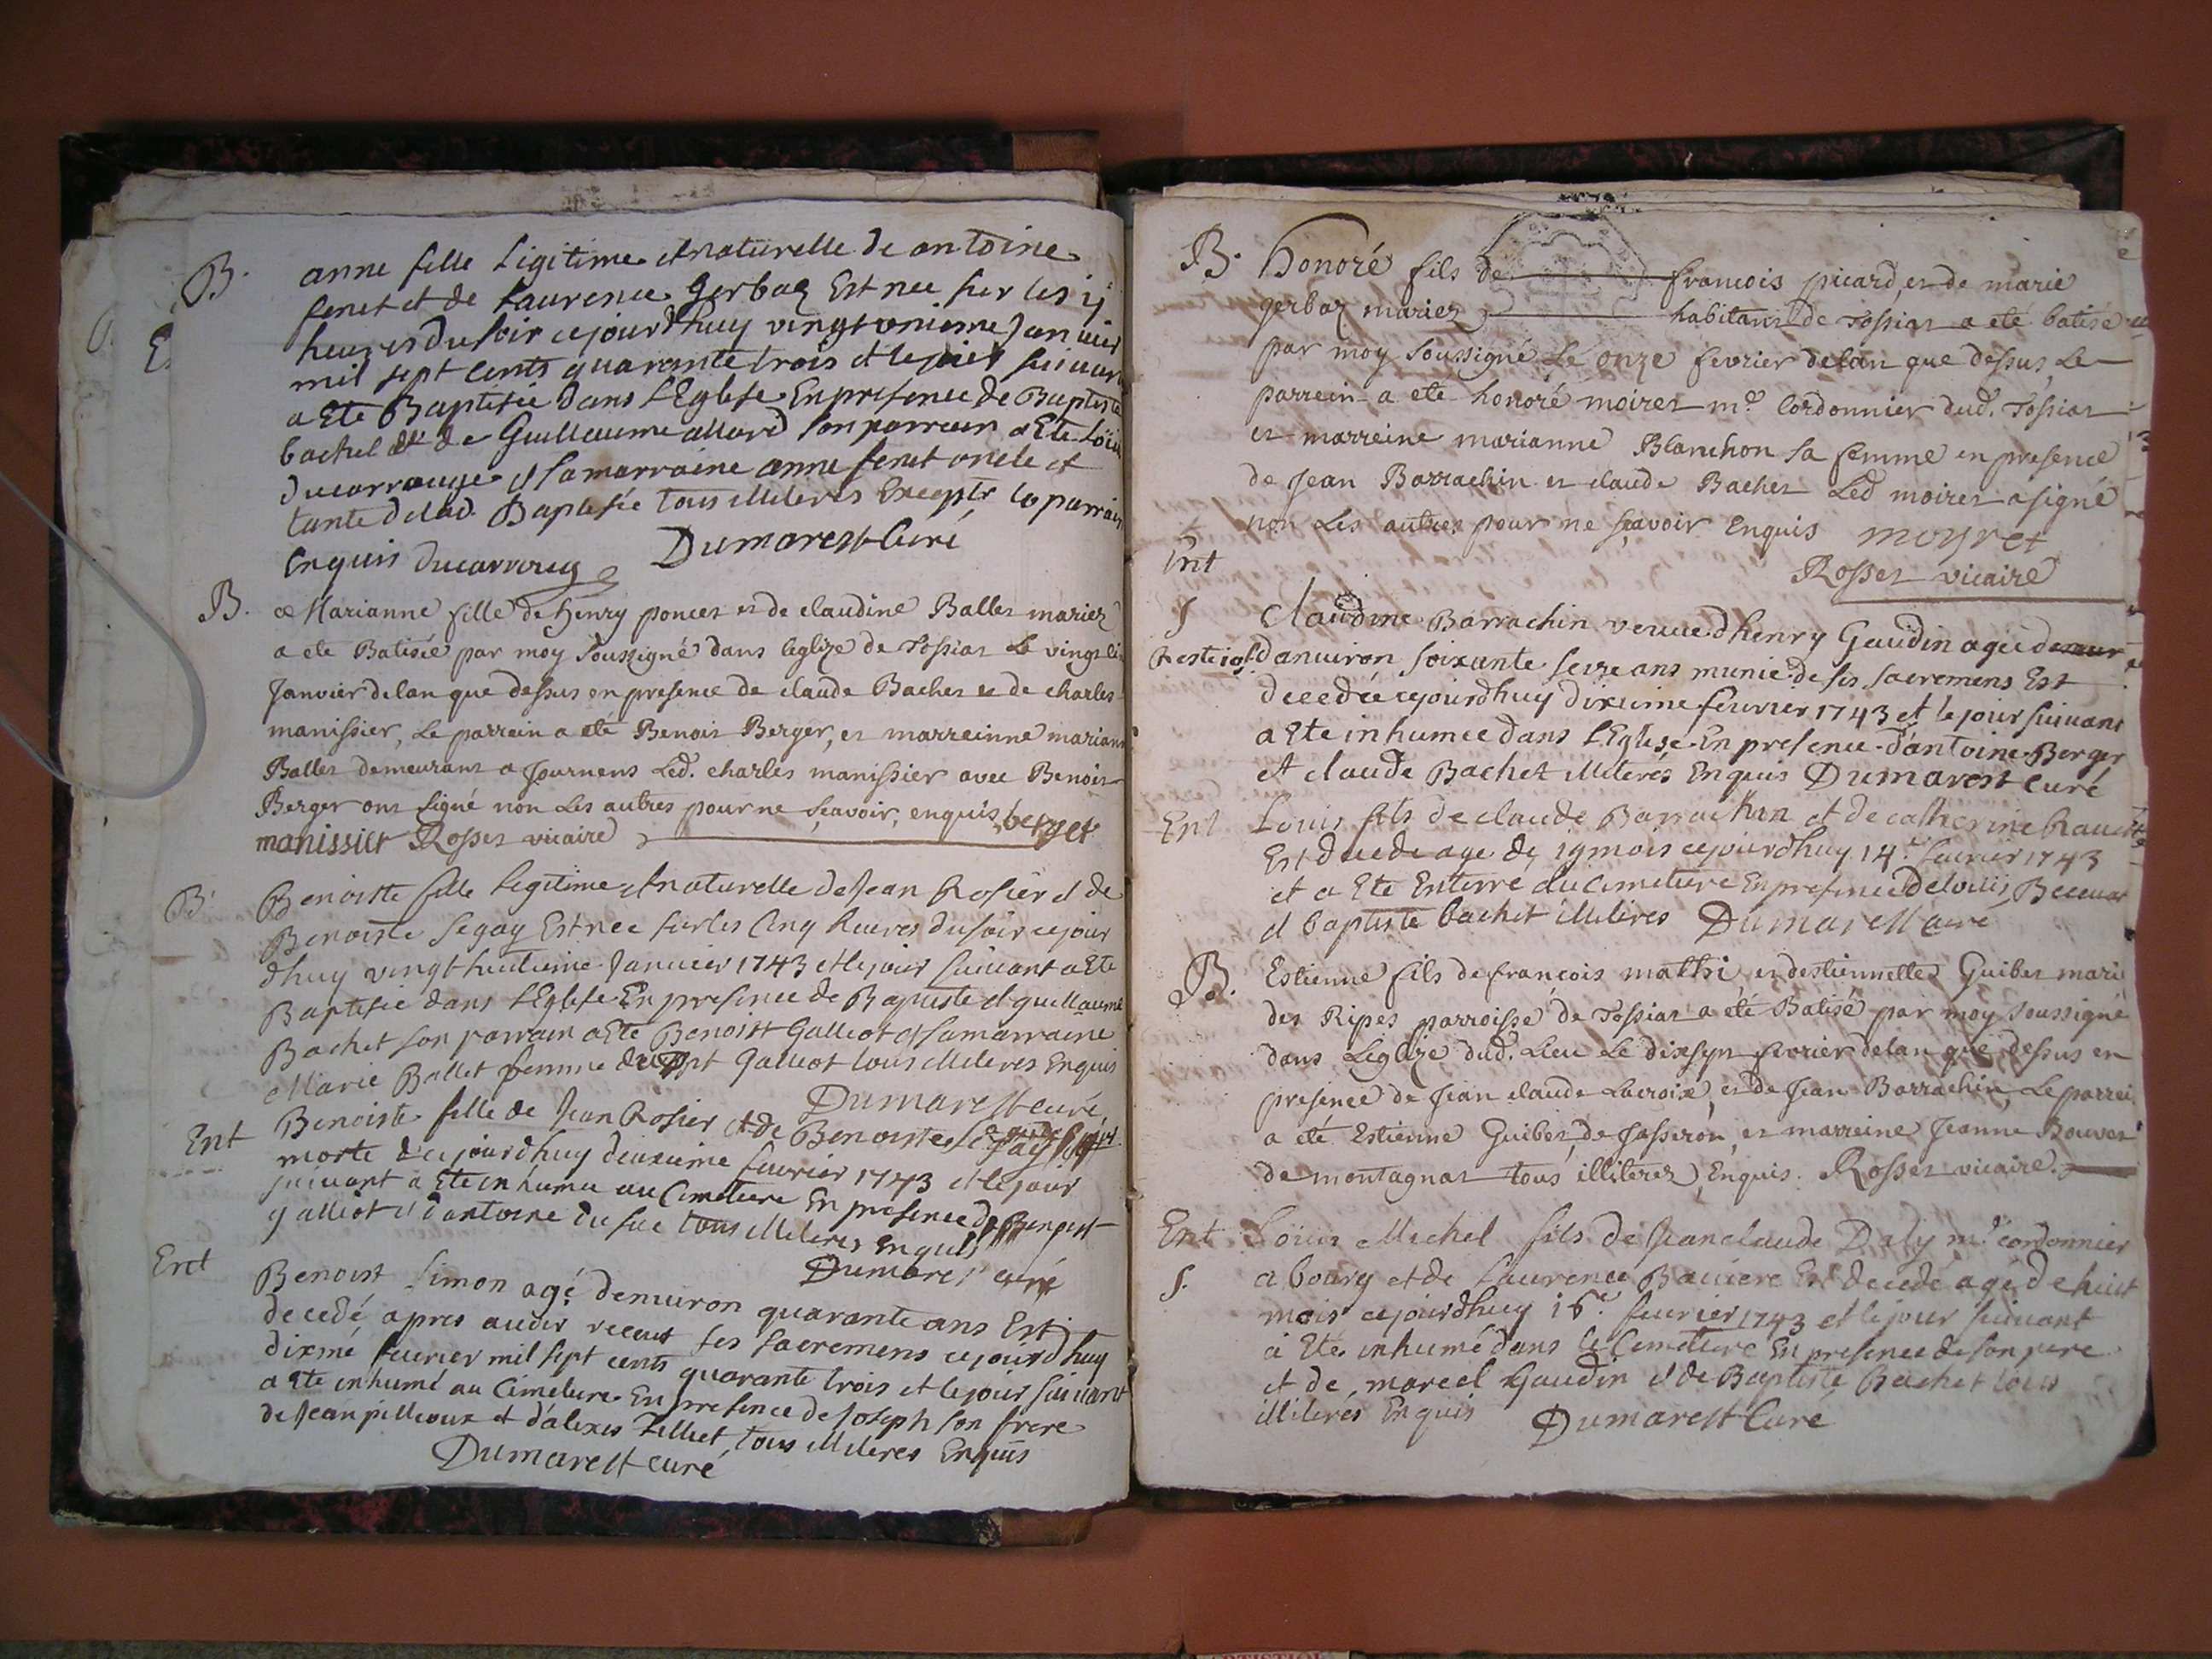 B. anne fille Ligitime et naturelle de antoine
fenet et de Laurence Gerbaz Est nee sur les
heures du soir cejourdhuy vingt unieme Janvier
mil sept cents quarante trois et le jour suivant
a Ete Baptisée dans L'Eglise En presence de Baptiste
bachet et de Guillaume allard son parrain a Ete Loüis
ducarrouge et sa marraine anne fenet oncle et
tante delad. Baptisée tous illiteres Excepte le parrain
Enquis ducarrouge Dumarest Curé
B. Marianne fille de henry poncet et de claudine Ballet mariez
a ete Batisée par moy soussigné dans leglize de Tossiat Le vingt
Janvier delan que dessus en presence de claude Bachet et de charles
manissier, Le parrein a eté Benoit Berger, et marreinne mariann
Ballet demeurant a Journens Led. charles manissier avec Benoit
Berger ont signé non Les autres pour ne sçavoir, enquis, berger
manissier Rosset vicaire
B. Benoiste fille Legitime et naturelle de Jean Rosier et de
Benoiste Segay Est nee sur les Cinq heures du soir cejour
dhuy vingt huitieme Janvier 1743 et le jour suivant a Ete
Baptisée dans L'Eglise En presence de Baptiste et guillaume
Bachet son parrain a Ete Benoist Galliot et sa marraine
Marie Ballet femme de Galliot tous illiteres Enquis
Dumarest curé
Ent Benoiste fille de Jean Rosier et de Benoiste Segay
morte cejourdhuy deuxieme fevrier 1743 et le jour
suivant a Ete inhumee au Cimetiere En presence de Benoist
galliot et d'antoine du fue tous illiteres Enquis
Dumarest curé
Ent Benoist Simon agé denviron quarante ans Est
decedé apres avoir receut ses sacremens cejourdhuy
dixme fevrier mil sept cents quarante trois et le jour suivant
a Ete inhumé au Cimetiere En presence de Joseph son frere
de Jean pilleoux et d'alexis Tilliet, tous illiteres Enquis
Dumarest curé
B. Honoré fils de francois picard, et de marie
gerbaz mariez habitans de Tossiat a eté batisé
par moy soussigné Le onze fevrier delan que dessus, Le
parrein a ete honoré moiret me. Cordonnier dud. Tossiat
et marreine marianne Blanchon sa femme en presence
de Jean Barrachin et claude Bachet Led moiret a signé
non Les autres pour ne sçavoir Enquis moyret
Rosset vicaire
Ent
S Claudine Barrachin veuve dhenry Gaudin agée
danviron soixante seize ans munie de ses sacremens Est
decedée cejourdhuy dixieme fevrier 1743 et le jour suivant
a Ete inhumée dans L'Eglise En presence d'antoine Berger
et claude Bachet illiterés Enquis Dumarest Curé
Ent Louis fils de claude Barrachin et de catherine
Est decede age de 19 mois cejourdhuy 14e fevrier 1743
et a Ete Enterré au Cimetiere En presence de louis
et baptiste bachet illiteres Dumarest Curé
B. Estienne fils de francois matthi, et destiennette Guibet marie
des Ripes parroisse de Tossiat a eté Batisé par moy soussigné
dans Leglize dud. Lieu Le dixsept fevrier delan que dessus en
presence de Jean claude Lacroix, et de Jean Barrachin, Le parrei
a eté Estienne Guibet, de Jasseron, et marreine Jeanne Bouvet
de montagnat tous illiterez, Enquis. Rosset vicaire.
Ent Loüis Michel fils de Jean claude Daly me. cordonnier
S. a bourg et de Laurence Baviere Est decedé agé de huit
mois cejourdhuy 16e. fevrier 1743 et le jour suivant
a Ete inhumé dans le Cimetiere En presence de son pere
et de marcel Gaudin et de Baptiste Bachet tous
illiteres Enquis Dumarest Curé